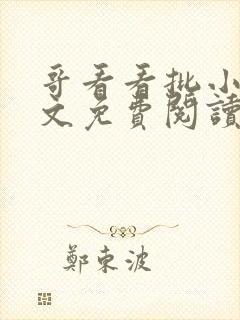 哥看看批小
文免費閱讀
鄭東波